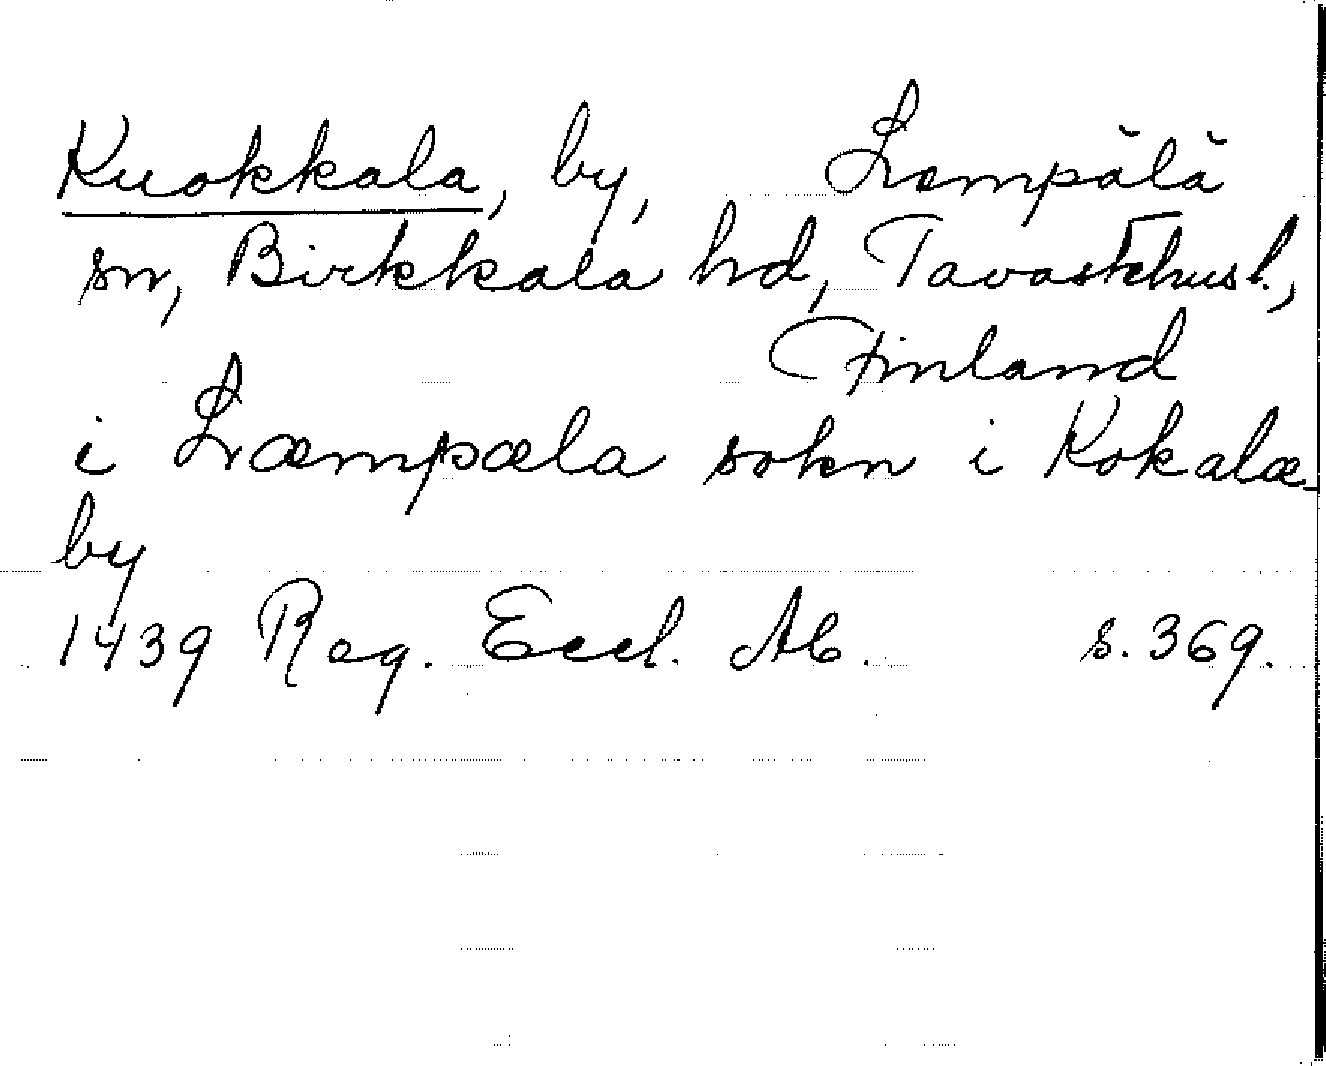 Kuokkala, by, Lempälä
sn, Birkkala hd, Tavastehusl.,
Finland
i Læmpæla sokn i Kokalæ-
by
1439 Reg. Eccl. Ab. s. 369.